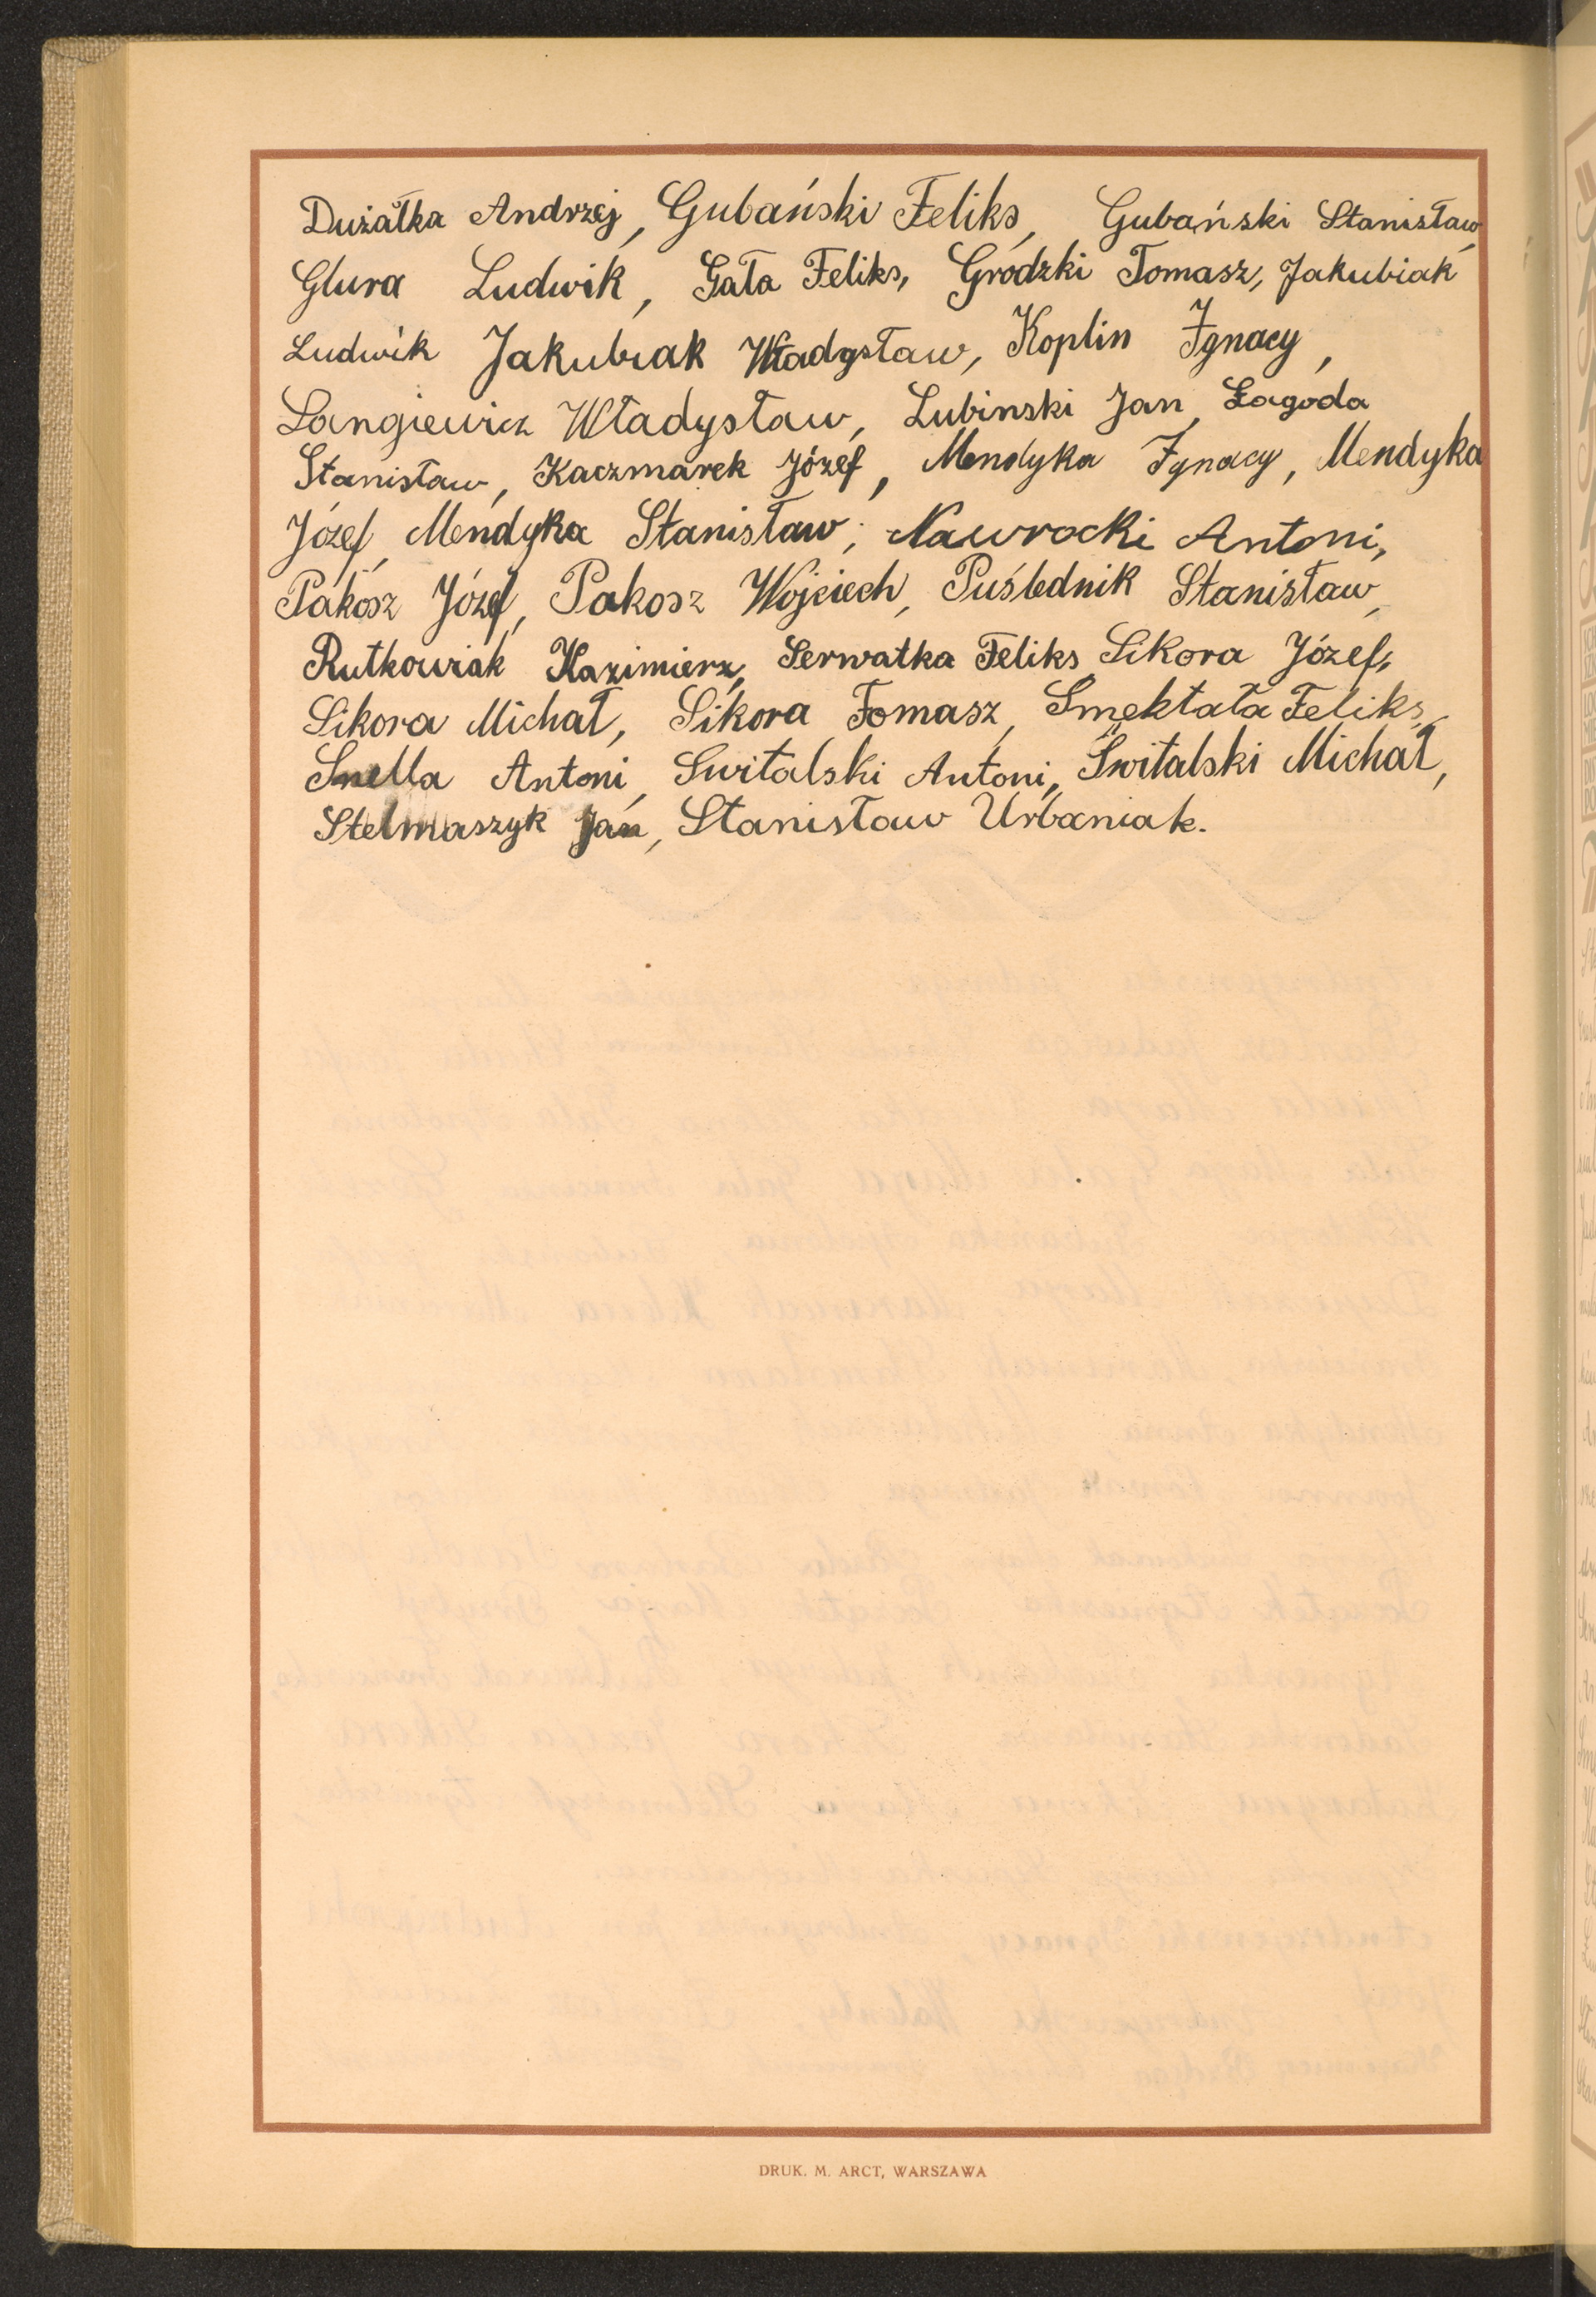 Dużałka Andrzej, Gubański Feliks, Gubański Stanisław,
Glura Ludwik, Gała Feliks, Gródzki Tomasz, Jakubiak
Ludwik Jakubiak Władysław, Koplin Ignacy,
Langiewicz Władysław, Lubinski Jan, Łagoda
Stanisław, Kaczmarek Józef, Mendyka Ignacy, Mendyka
Józef, Mendyka Stanisław, Nawrocki Antoni,
Pakosz Józef, Pakosz Wojciech, Puślednik Stanisław,
Rutkowiak Kazimierz, Serwatka Feliks Sikora Józef,
Sikora Michał, Sikora Tomasz, Smektała Feliks,
Snella Antoni, Switalski Antoni, Świtalski Michał,
Stelmaszyk Jan, Stanisław Urbaniak.
DRUK. M. ARCT, WARSZAWA